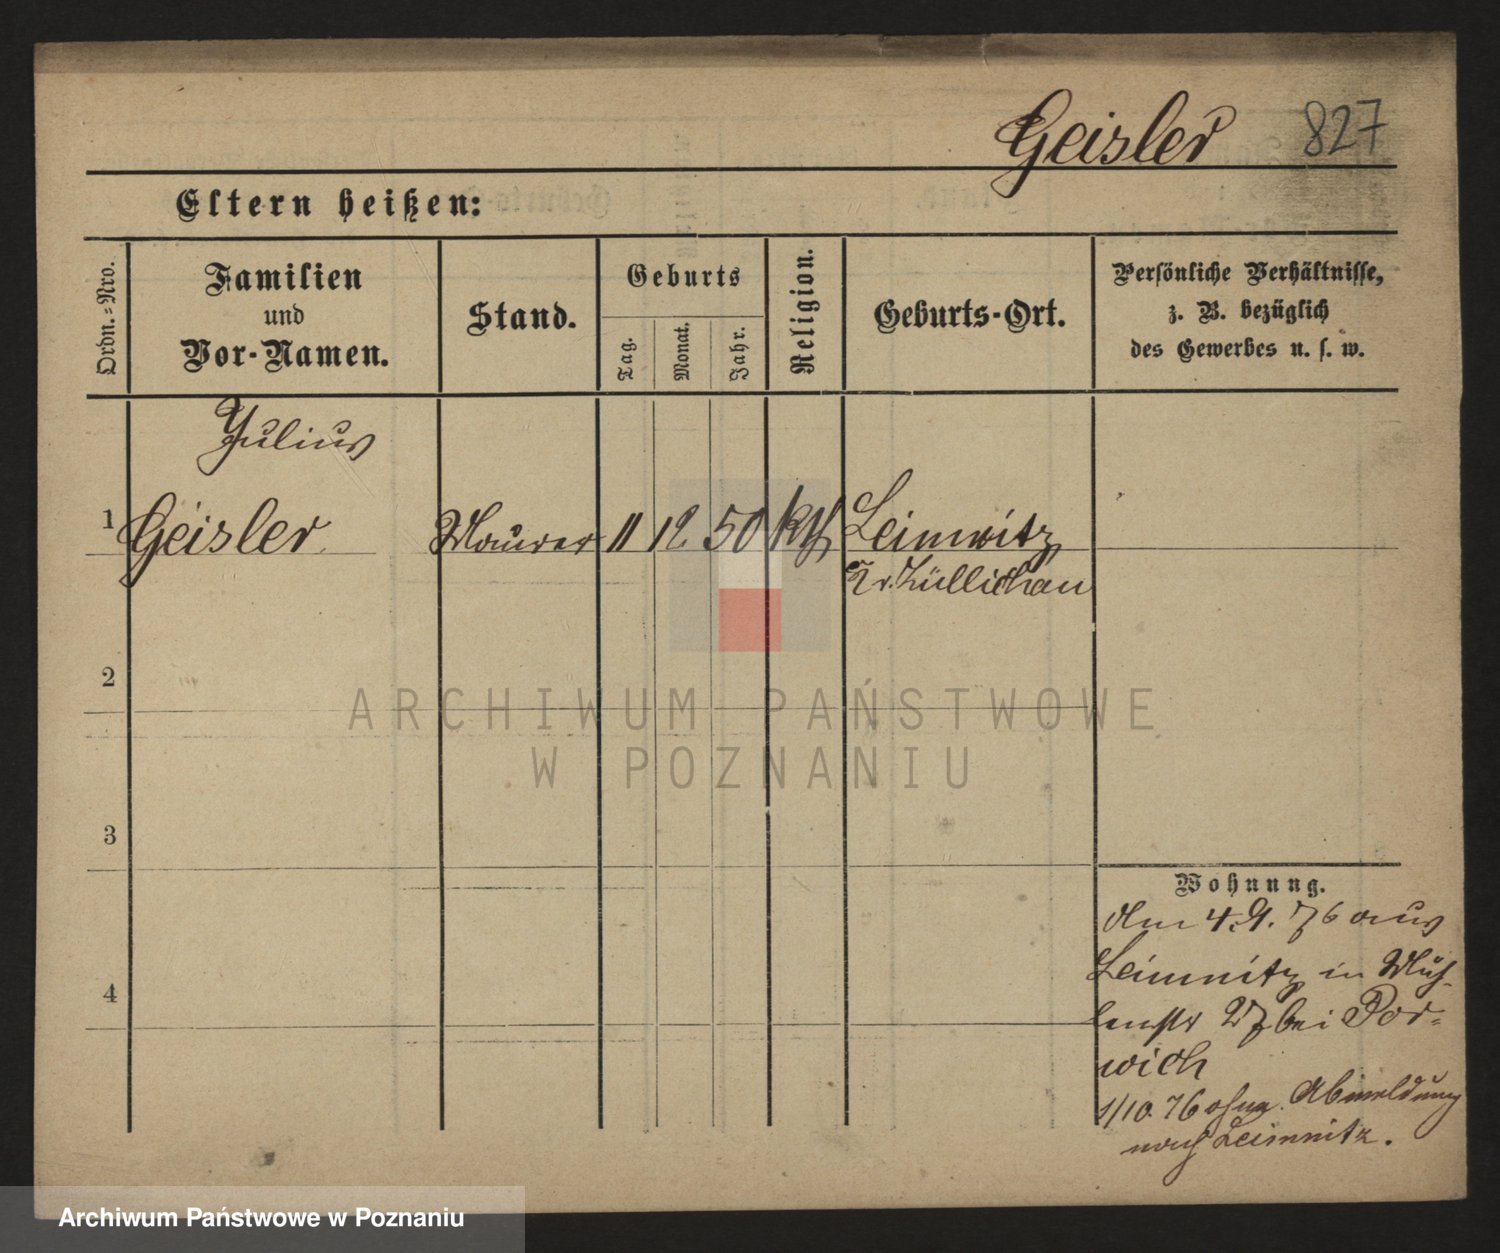 Geisler 827
Eltern heißen:
Ordn.-Nro.
Familien
und
Vor-Namen.
Stand.
Geburts
Tag.
Monat.
Jahr.
Religion.
Geburts-Ort.
Persönliche Verhältnisse,
z. B. bezüglich
des Gewerbes u. s. w.
Julius
1 Geisler Maurer 11 12 50 kth Leimnitz
Kr. Züllichau
2
3
4
Wohnung.
Am 4.9.76 aus
Leimnitz in Müh-
lenstr 27 bei Por-
wich
1/10.76 ohne Abmeldung
nach Leimnitz.
ARCHIWUM PAŃSTWOWE
W POZNANIU
Archiwum Państwowe w Poznaniu